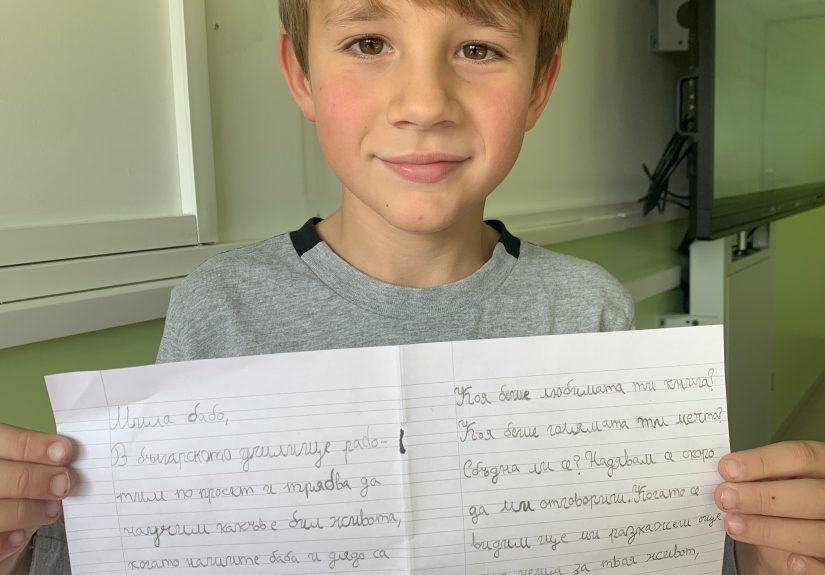 Мила бабо,
В българското училище рабо-
тим по проект и трябва да
научим какъв е бил живота,
когато нашите баба и дядо са
Коя беше любимата ти книга?
Коя беше голямата ти мечта?
Сбъдна ли се? Надявам се скоро
да ми отговориш. Когато се
видим ще ми разкажеш още
неща за твоя живот,